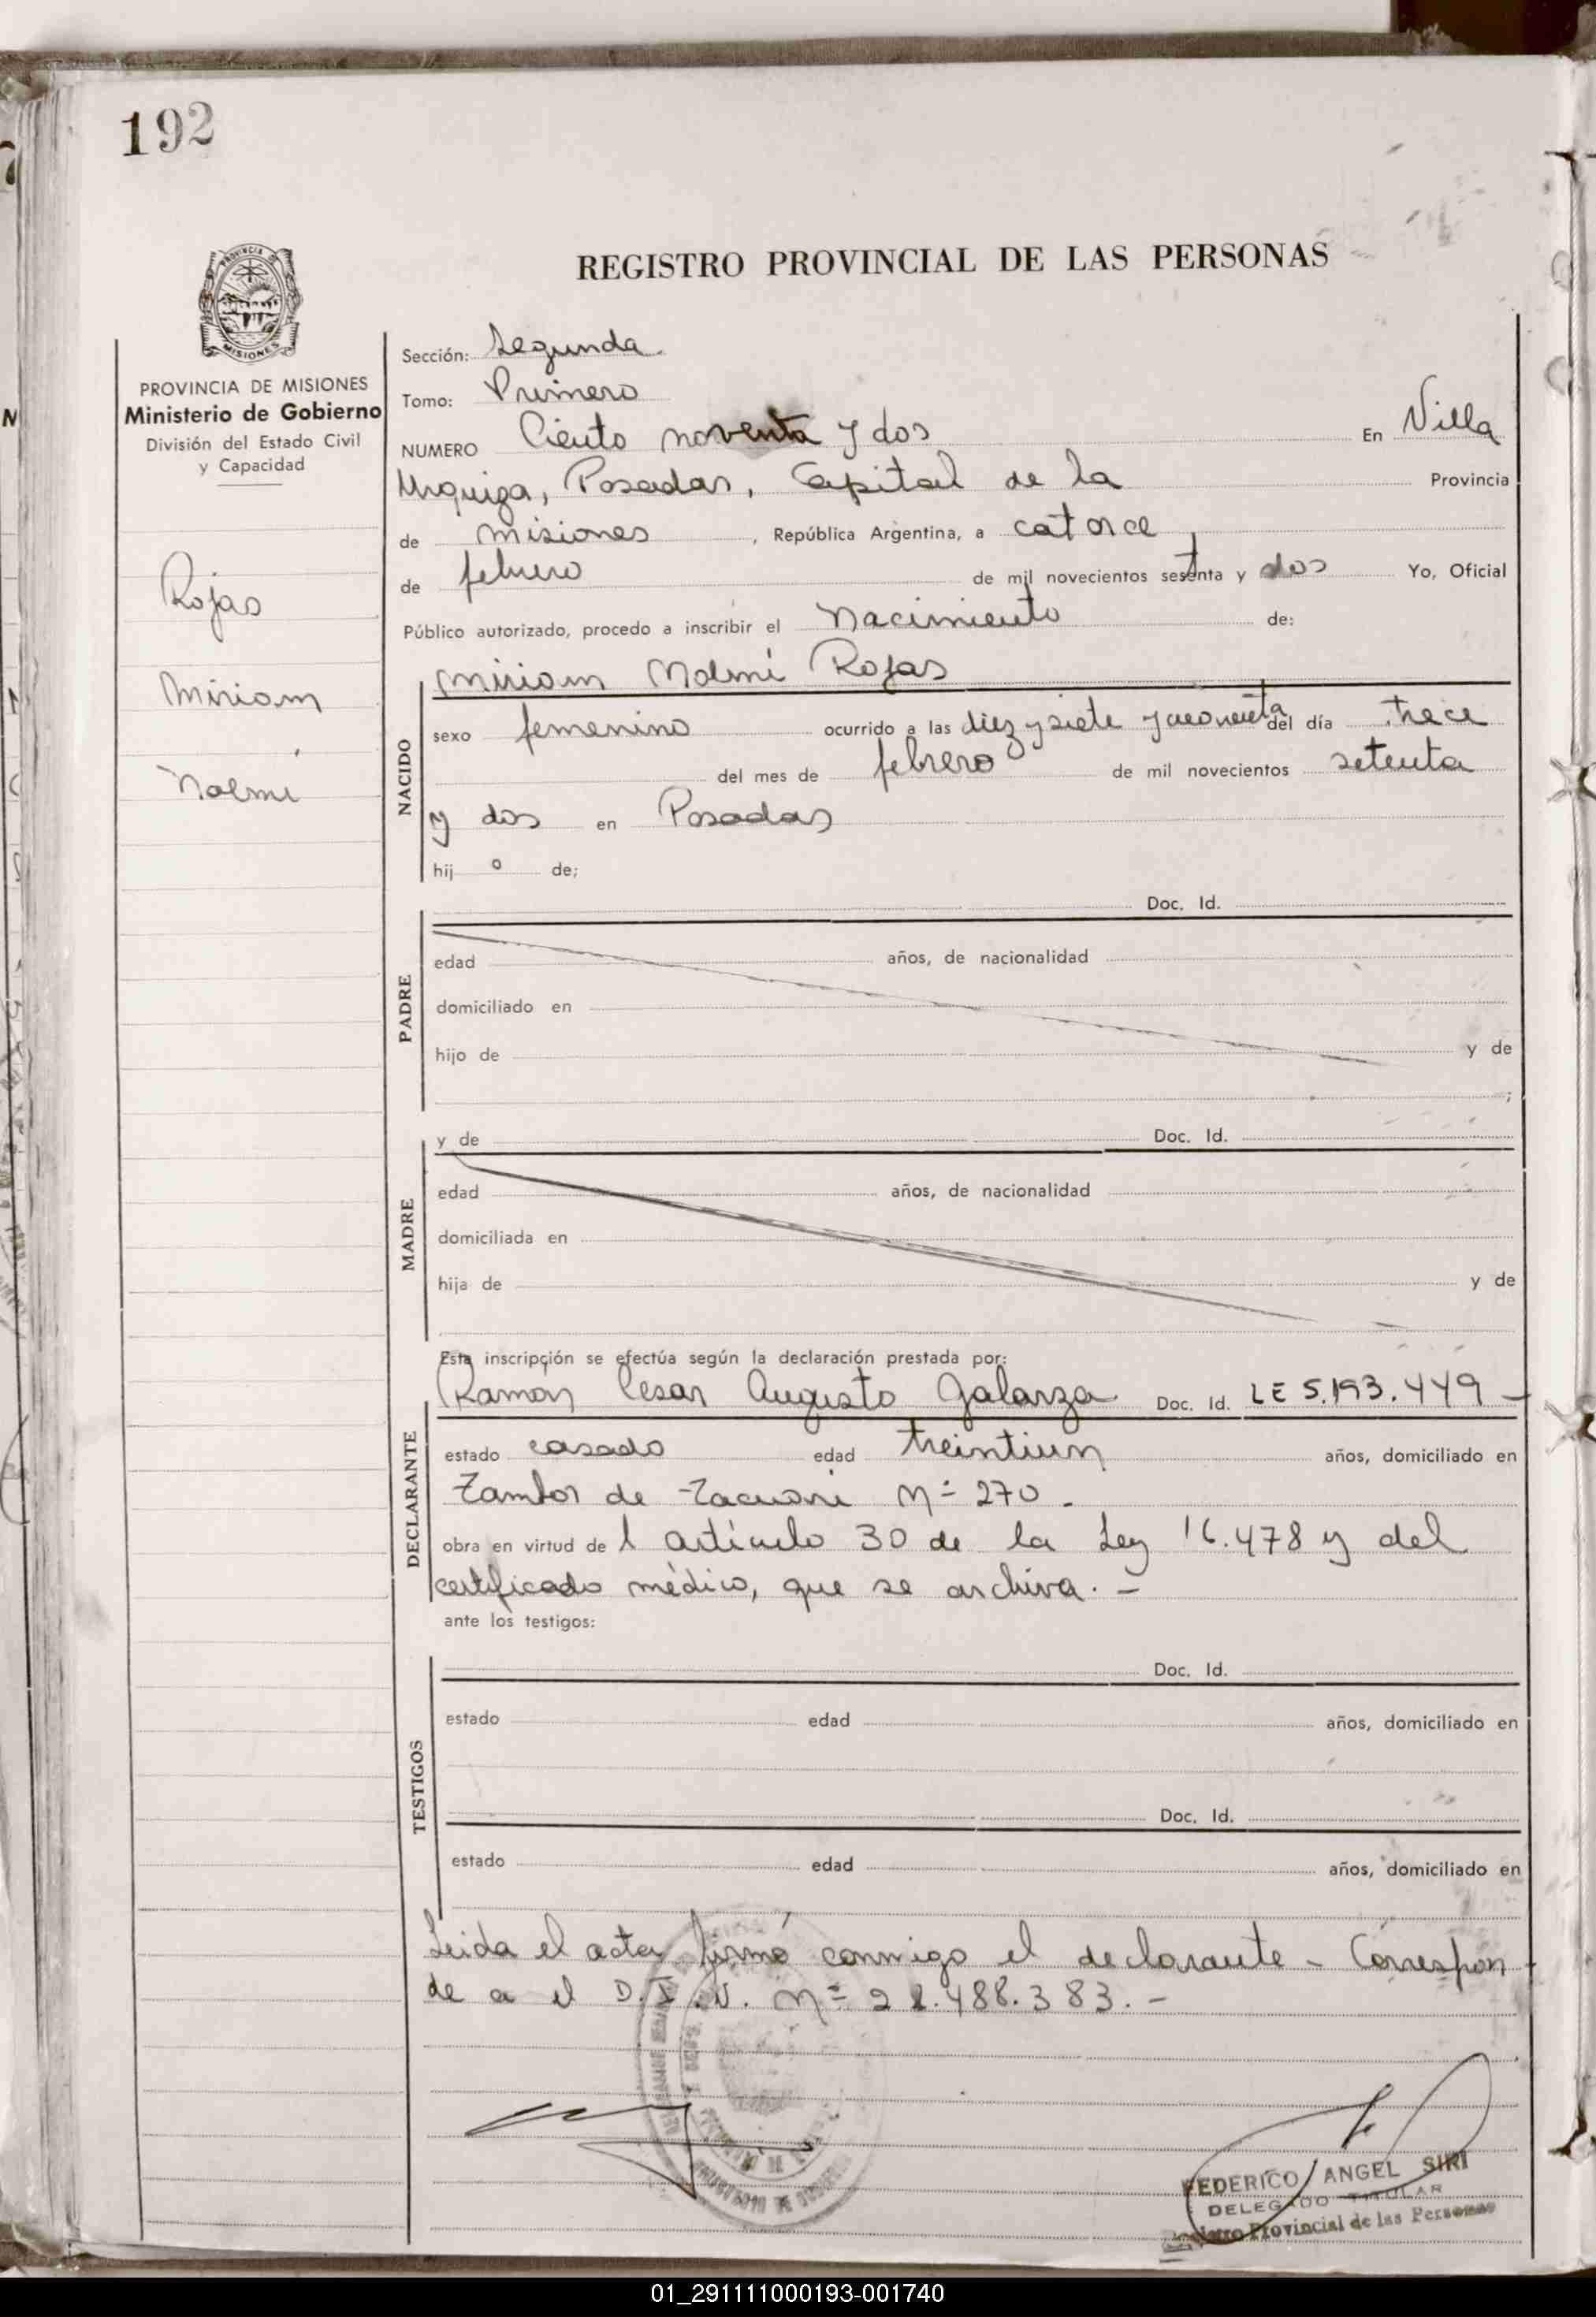 192
REGISTRO PROVINCIAL DE LAS PERSONAS
PROVINCIA DE
MISIONES
PROVINCIA DE MISIONES
Ministerio de Gobierno
División del Estado Civil
y Capacidad
Rojas
Miriam
Noemí
Sección: Segunda
Tomo: Primero
NUMERO Ciento noventa y dos En Villa
Urquiza, Posadas, Capital de la Provincia
de Misiones, República Argentina, a catorce
de febrero de mil novecientos setenta y dos Yo, Oficial
Público autorizado, procedo a inscribir el Nacimiento de:
Miriam Noemí Rojas
NACIDO
sexo femenino ocurrido a las diez y siete y cuarenta del día trece
del mes de febrero de mil novecientos setenta
y dos en Posadas
hij a de;
Doc. Id.
PADRE
edad años, de nacionalidad
domiciliado en
hijo de y de
;
y de Doc. Id.
MADRE
edad años, de nacionalidad
domiciliada en
hija de y de
Esta inscripción se efectúa según la declaración prestada por:
Ramon Cesar Augusto Galarza Doc. Id. LE 5.193.449 -
DECLARANTE
estado casado edad treintiun años, domiciliado en
Tambor de Tacuari Nº 270.
obra en virtud del artículo 30 de la Ley 16.478 y del
certificado médico, que se archiva. -
ante los testigos:
Doc. Id.
TESTIGOS
estado edad años, domiciliado en
Doc. Id.
estado edad años, domiciliado en
Leida el acta, firmó conmigo el declarante - Correspon
de a el D.I.N. Nº 22.488.383. -
FEDERICO ANGEL SIRI
DELEGADO TITULAR
Registro Provincial de las Personas
01_291111000193-001740